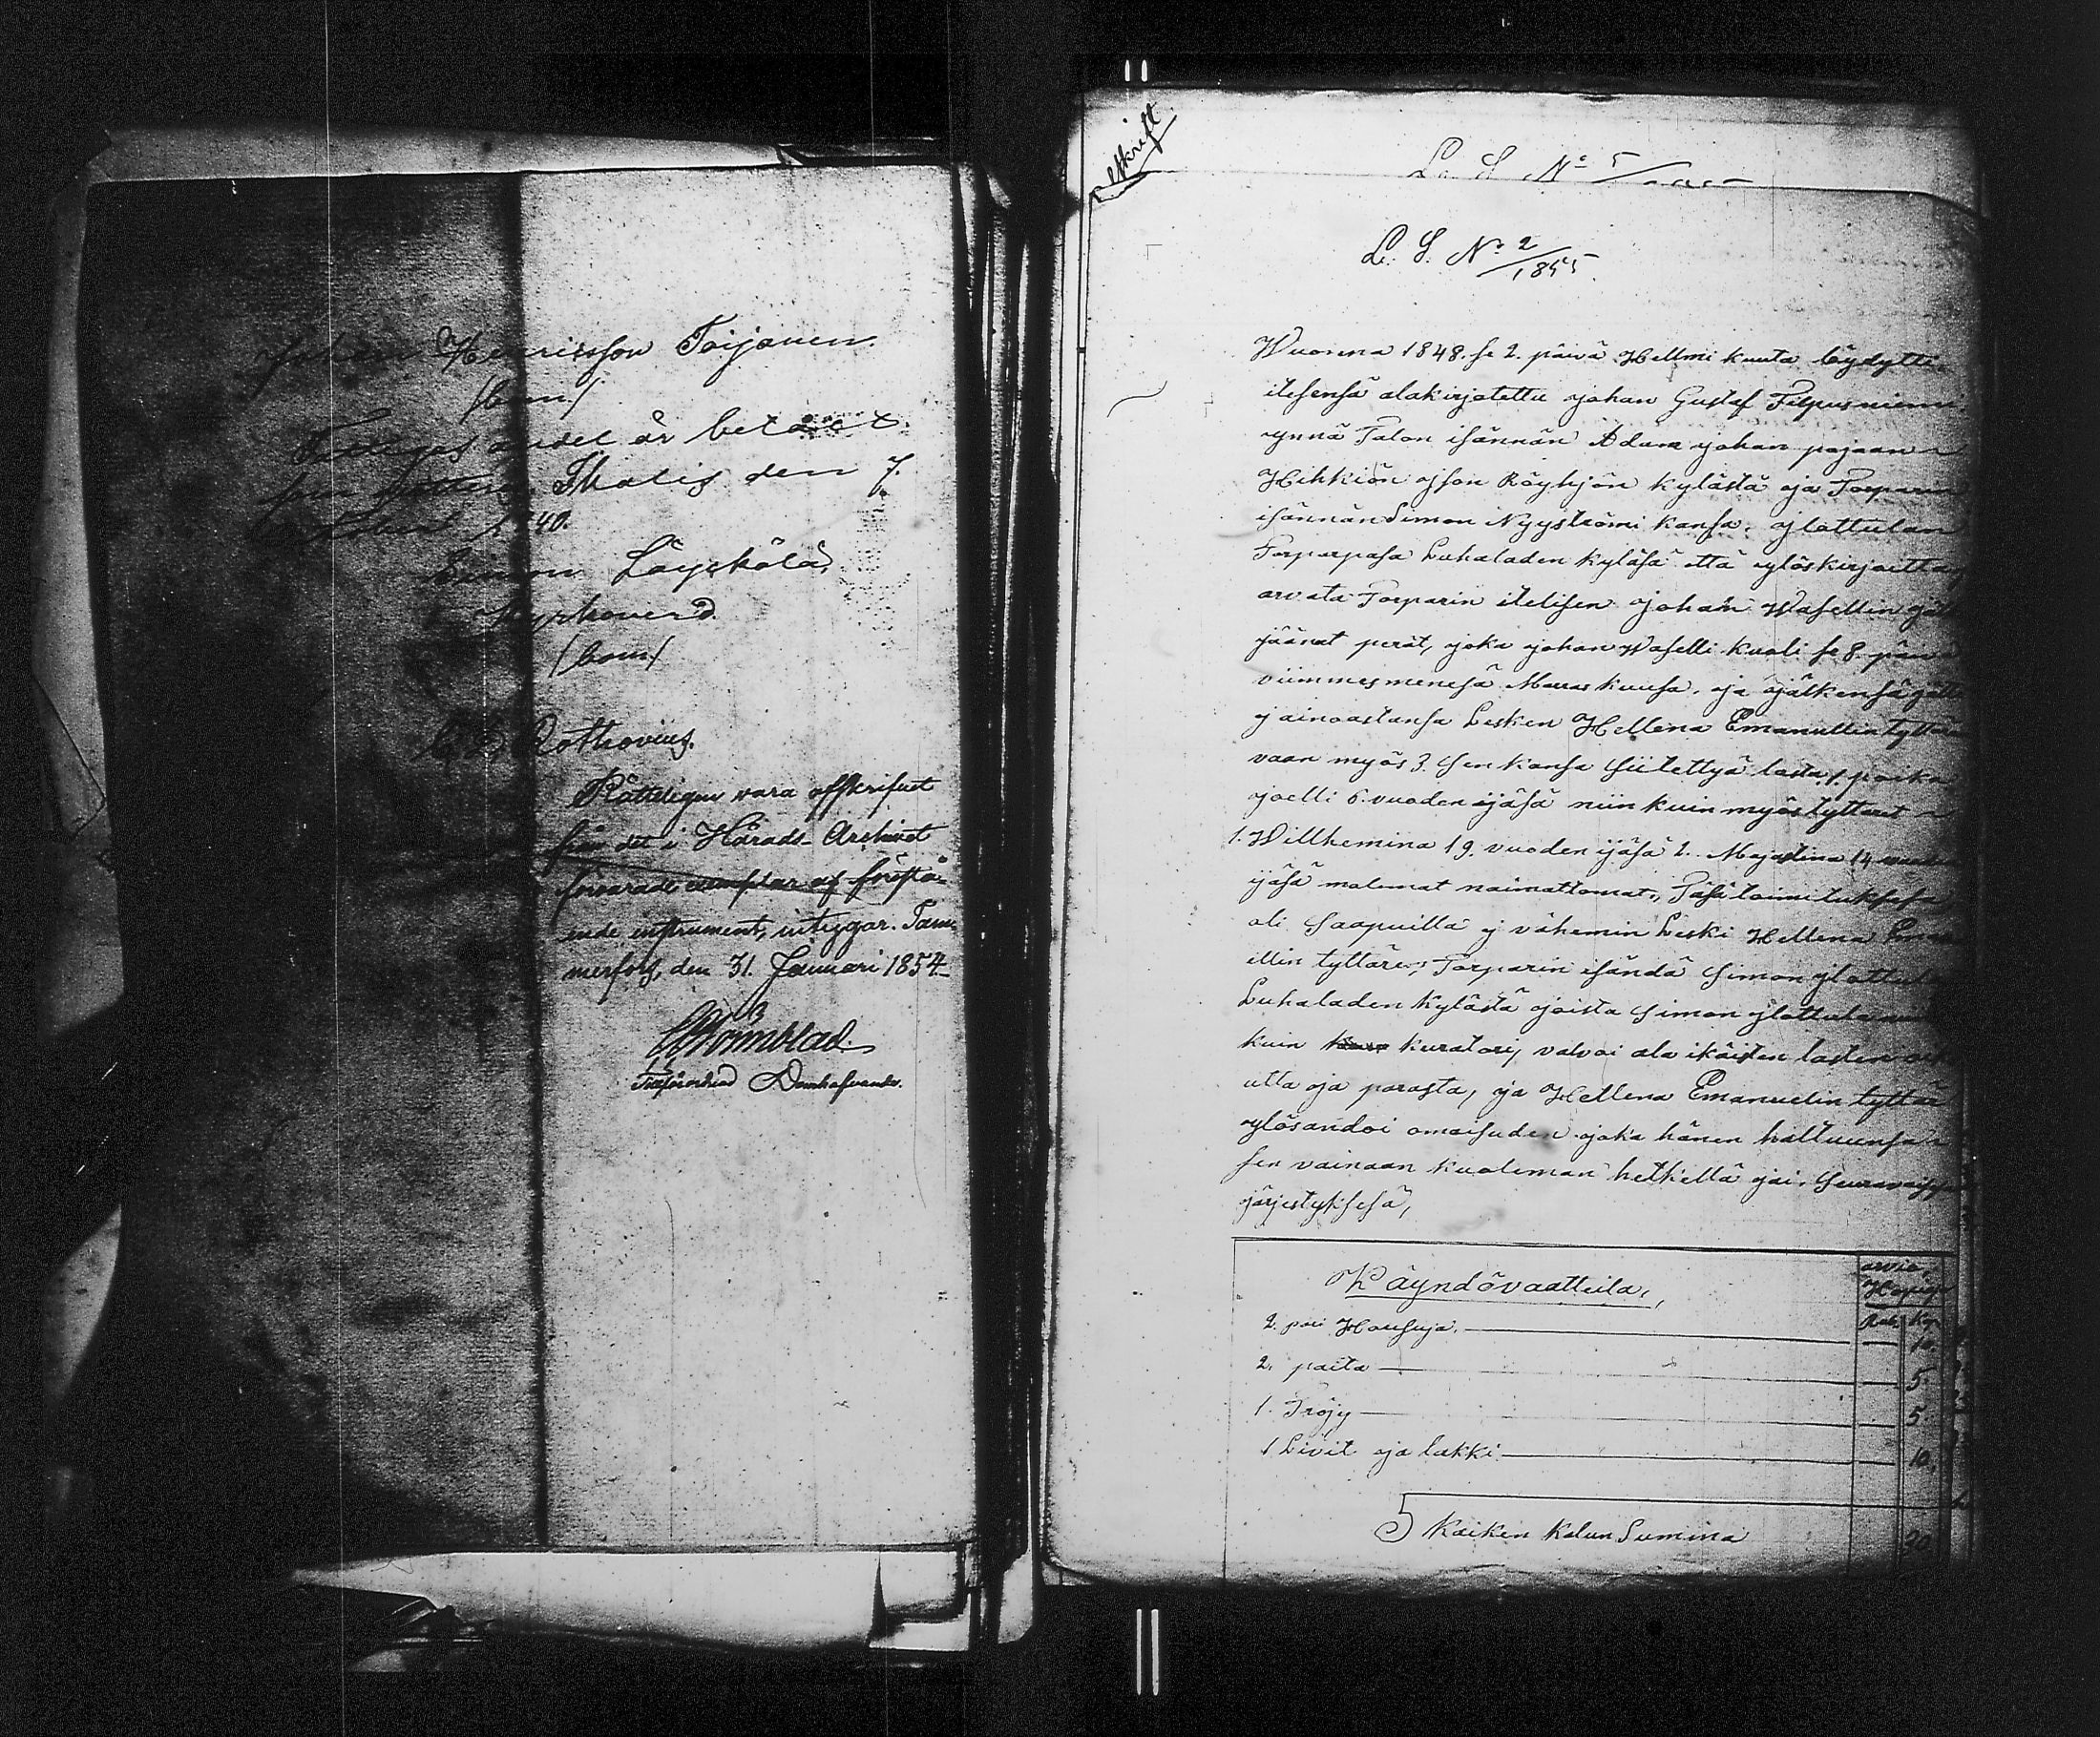 Johan Henriksson Toijonen.
/bom/
Fattiges andel är betalt
som qvitteras. Ikalis den 7.
1840.
Simon Löyskölä,
Kyrkoverd.
/bom/
Rothovius.
Rätteligen vara affskrifvet
från det i Härads-Archivet
förvarade exemplar af förestå-
ende instrument, intygar. Tam-
merfors, den 31. Januari 1854.
Tillförordnad Domhafvande.
Afskrift
L. S. No 5/
L. S. No 2/1855.
Wuonna 1848. se 2. päivä Hellmi kuuta löydytti
itesensä alakirjotettu johan Gustaf Filpusniemi
ynnä Talon isännän Adam johan pojaan
Hihkiön ojson Röyhjön kylästä ja Torparin
isännän Simon Nyyströmi kansa. jlottulan
Torparpasa Luhaladen kyläsä että ylöskirjoitta
arvata Torparin itelisen johan Wasellin jäl
jäänet perät, joka johan Waselli kuoli se 8. päivä
viimmesmenesä Marraskuusa. ja jälkensä jätti
jainoastansa Lesken Hellena Emanuelin tyttären
vaan myös 3. sen kansa siitettyä lasta, 1. poika
joelli 6. vuoden ijäsä niin kuin myös tyttäret
1. Willhemina 19. vuoden ijäsä 2. Majastina 14 vuoden
ijäsä malemat naimattomat., Täsä toimituksesa
oli saapuilla j vähemin Leski Hellena
illin tyttären, Torparin isändä Simon jlottula
Luhaladen kylästä joista Simon jlottula niin
kuin kuratori, valvoi ala ikäisten lasten oik
utta ja parasta, ja Hellena Emanuelin tyttär
ylösandoi omaisuden joka hänen haltuunsa
sen vainaan kuoleman hetkellä jäi. Seuravaissa
järjestyksesä,
Käyndövaatteita,
arvio
Hopiga
Rub. Kop.
2. pari Housuja. 10.
2. paita 5
1. Tröjy 5
1 Livit ja lakki 10.
Kaiken kalun Summa 30